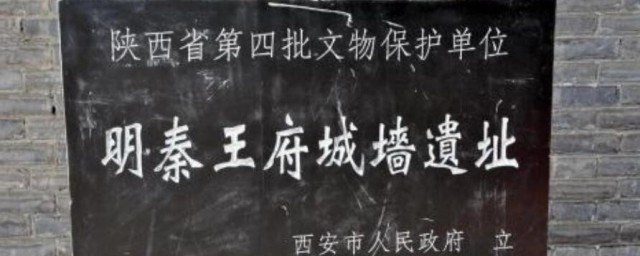 陕西省第四批文物保护单位
明秦王府城墙遺址
西安市人民政府 立